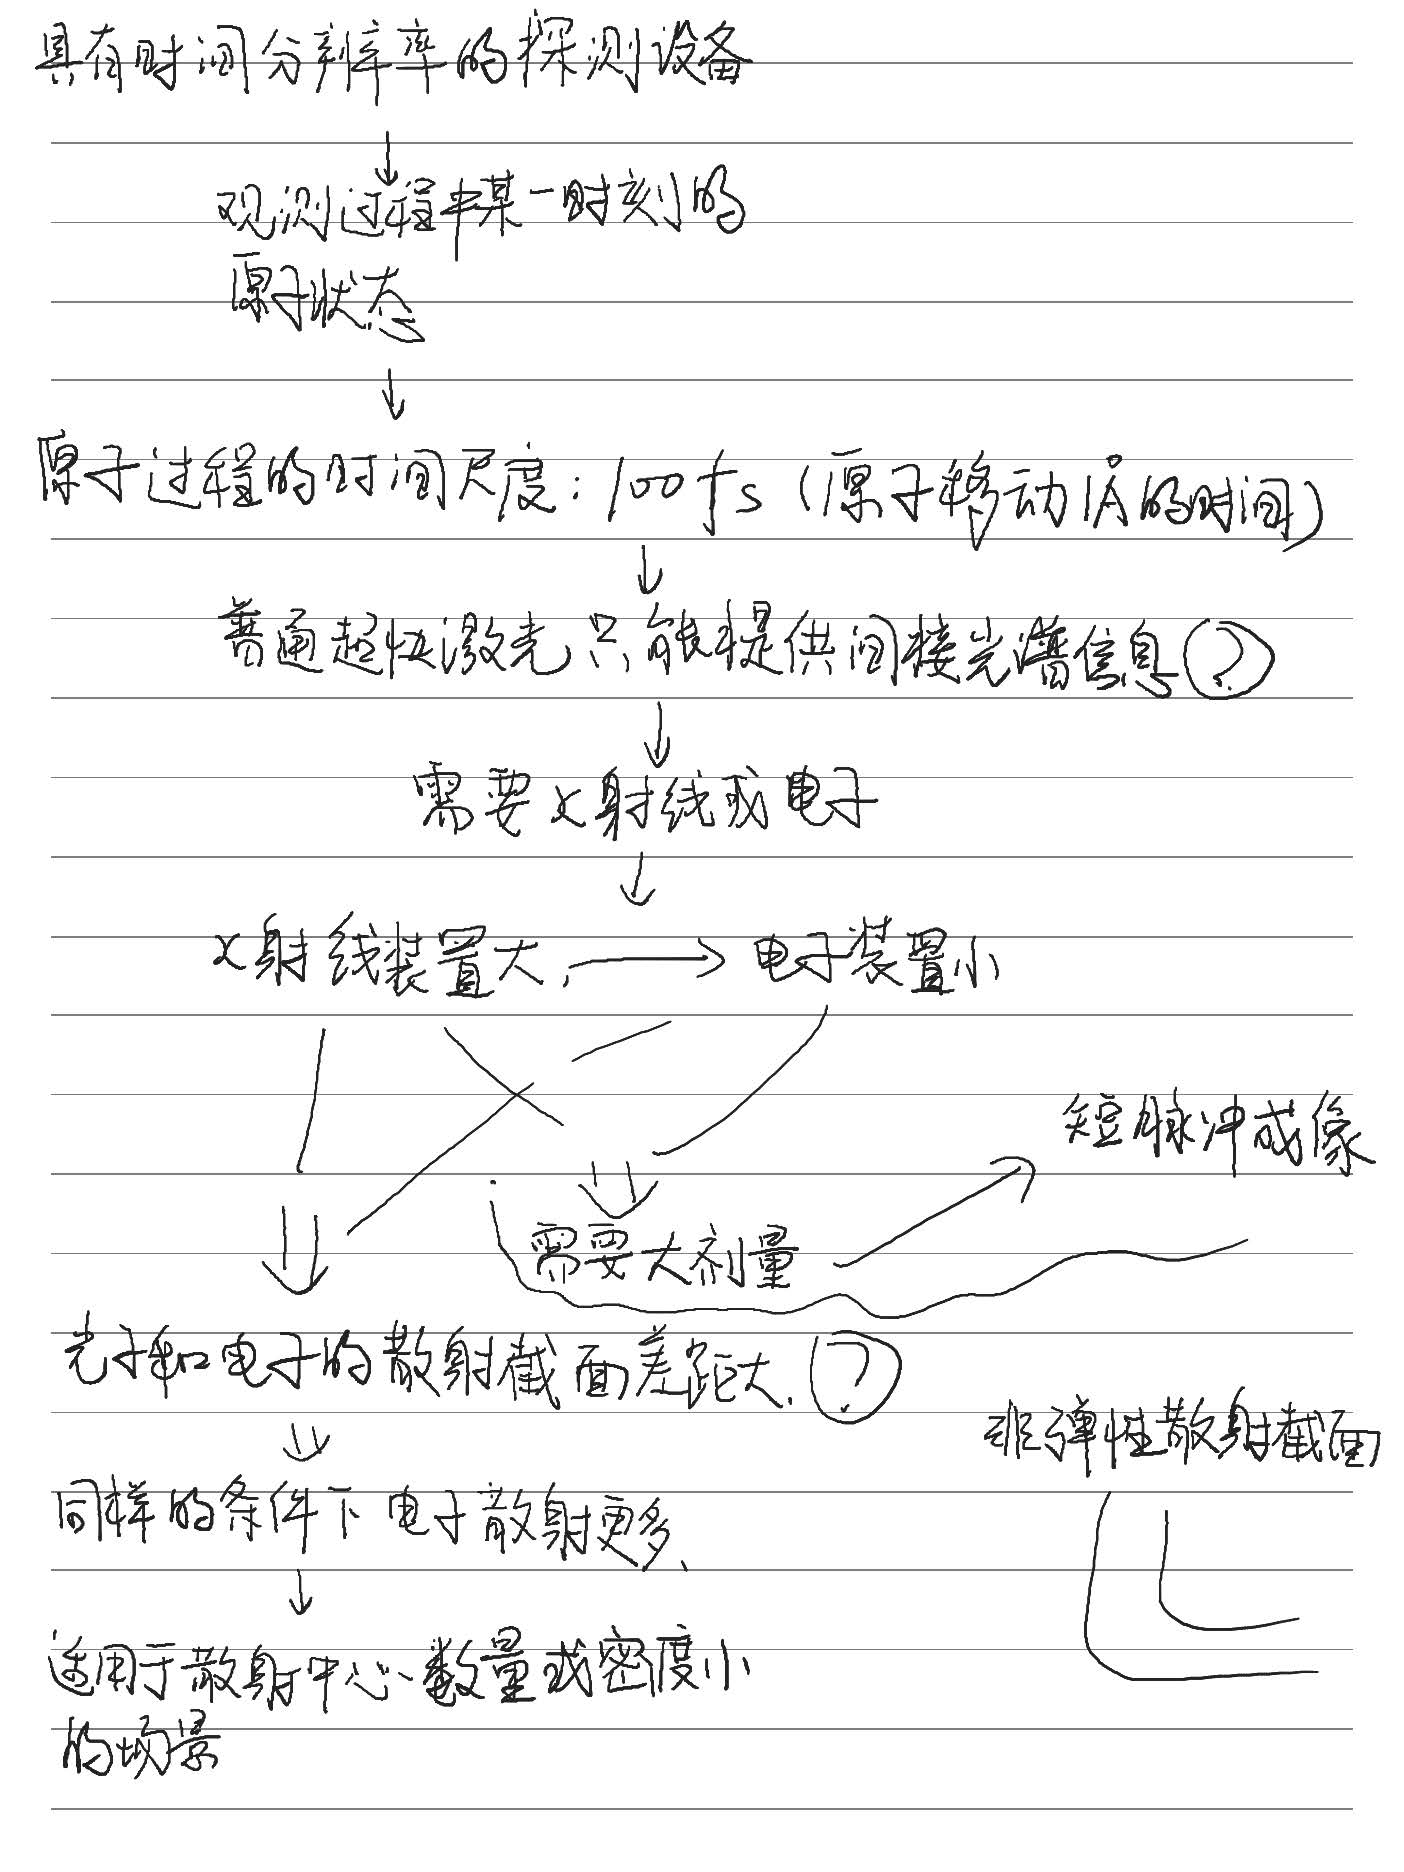 具有时间分辨率的探测设备
↓
观测过程中某一时刻的
原子状态
↓
原子过程的时间尺度：100fs（原子移动1Å的时间）
↓
普通超快激光只能提供间接光谱信息？
↓
需要X射线或电子
↓
X射线装置大，→电子装置小
短脉冲成像
需要大剂量
光子和电子的散射截面差距大.？
非弹性散射截面
同样的条件下电子散射更多、
↓
适用于散射中心数量或密度小
的场景